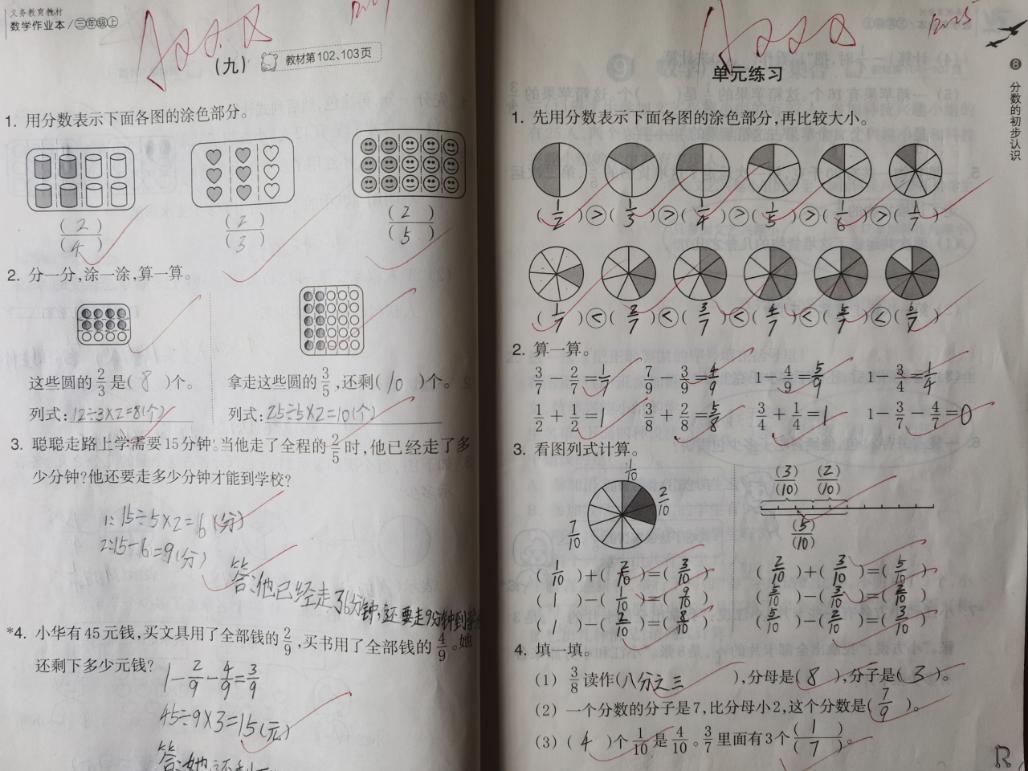 义务教育教材
数学作业本/三年级上
(九) 教材第102、103页
1. 用分数表示下面各图的涂色部分。
(2)/(4) (2)/(3) (2)/(5)
2. 分一分,涂一涂,算一算。
这些圆的2/3是(8)个。 拿走这些圆的3/5,还剩(10)个。
列式:12÷3×2=8(个) 列式:25÷5×2=10(个)
3. 聪聪走路上学需要15分钟。当他走了全程的2/5时,他已经走了多
少分钟?他还要走多少分钟才能到学校?
1:15÷5×2=6(分)
2:15-6=9(分)
答:他已经走了6分钟,还要走9分钟到
*4. 小华有45元钱,买文具用了全部钱的2/9,买书用了全部钱的4/9。她
还剩下多少元钱?
1-2/9-4/9=3/9
45÷9×3=15(元)
答:她还剩
⑧ 分数的初步认识
单元练习
1. 先用分数表示下面各图的涂色部分,再比较大小。
(1/2)>(1/3)>(1/4)>(1/5)>(1/6)>(1/7)
(1/7)<(2/7)<(3/7)<(4/7)<(5/7)<(6/7)
2. 算一算。
3/7-2/7=1/7 7/9-3/9=4/9 1-4/9=5/9 1-3/4=1/4
1/2+1/2=1 3/8+2/8=5/8 3/4+1/4=1 1-3/7-4/7=0
3. 看图列式计算。
1/10 2/10 7/10
(3)/(10) (2)/(10)
(5)/(10)
(1/10)+(2/10)=(3/10) (2/10)+(3/10)=(5/10)
(1)-(1/10)=(9/10) (5/10)-(3/10)=(2/10)
(1)-(2/10)=(8/10) (5/10)-(2/10)=(3/10)
4. 填一填。
(1) 3/8读作(八分之三),分母是(8),分子是(3)。
(2) 一个分数的分子是7,比分母小2,这个分数是(7/9)。
(3) (4)个1/10是4/10。3/7里面有3个(1)/(7)。